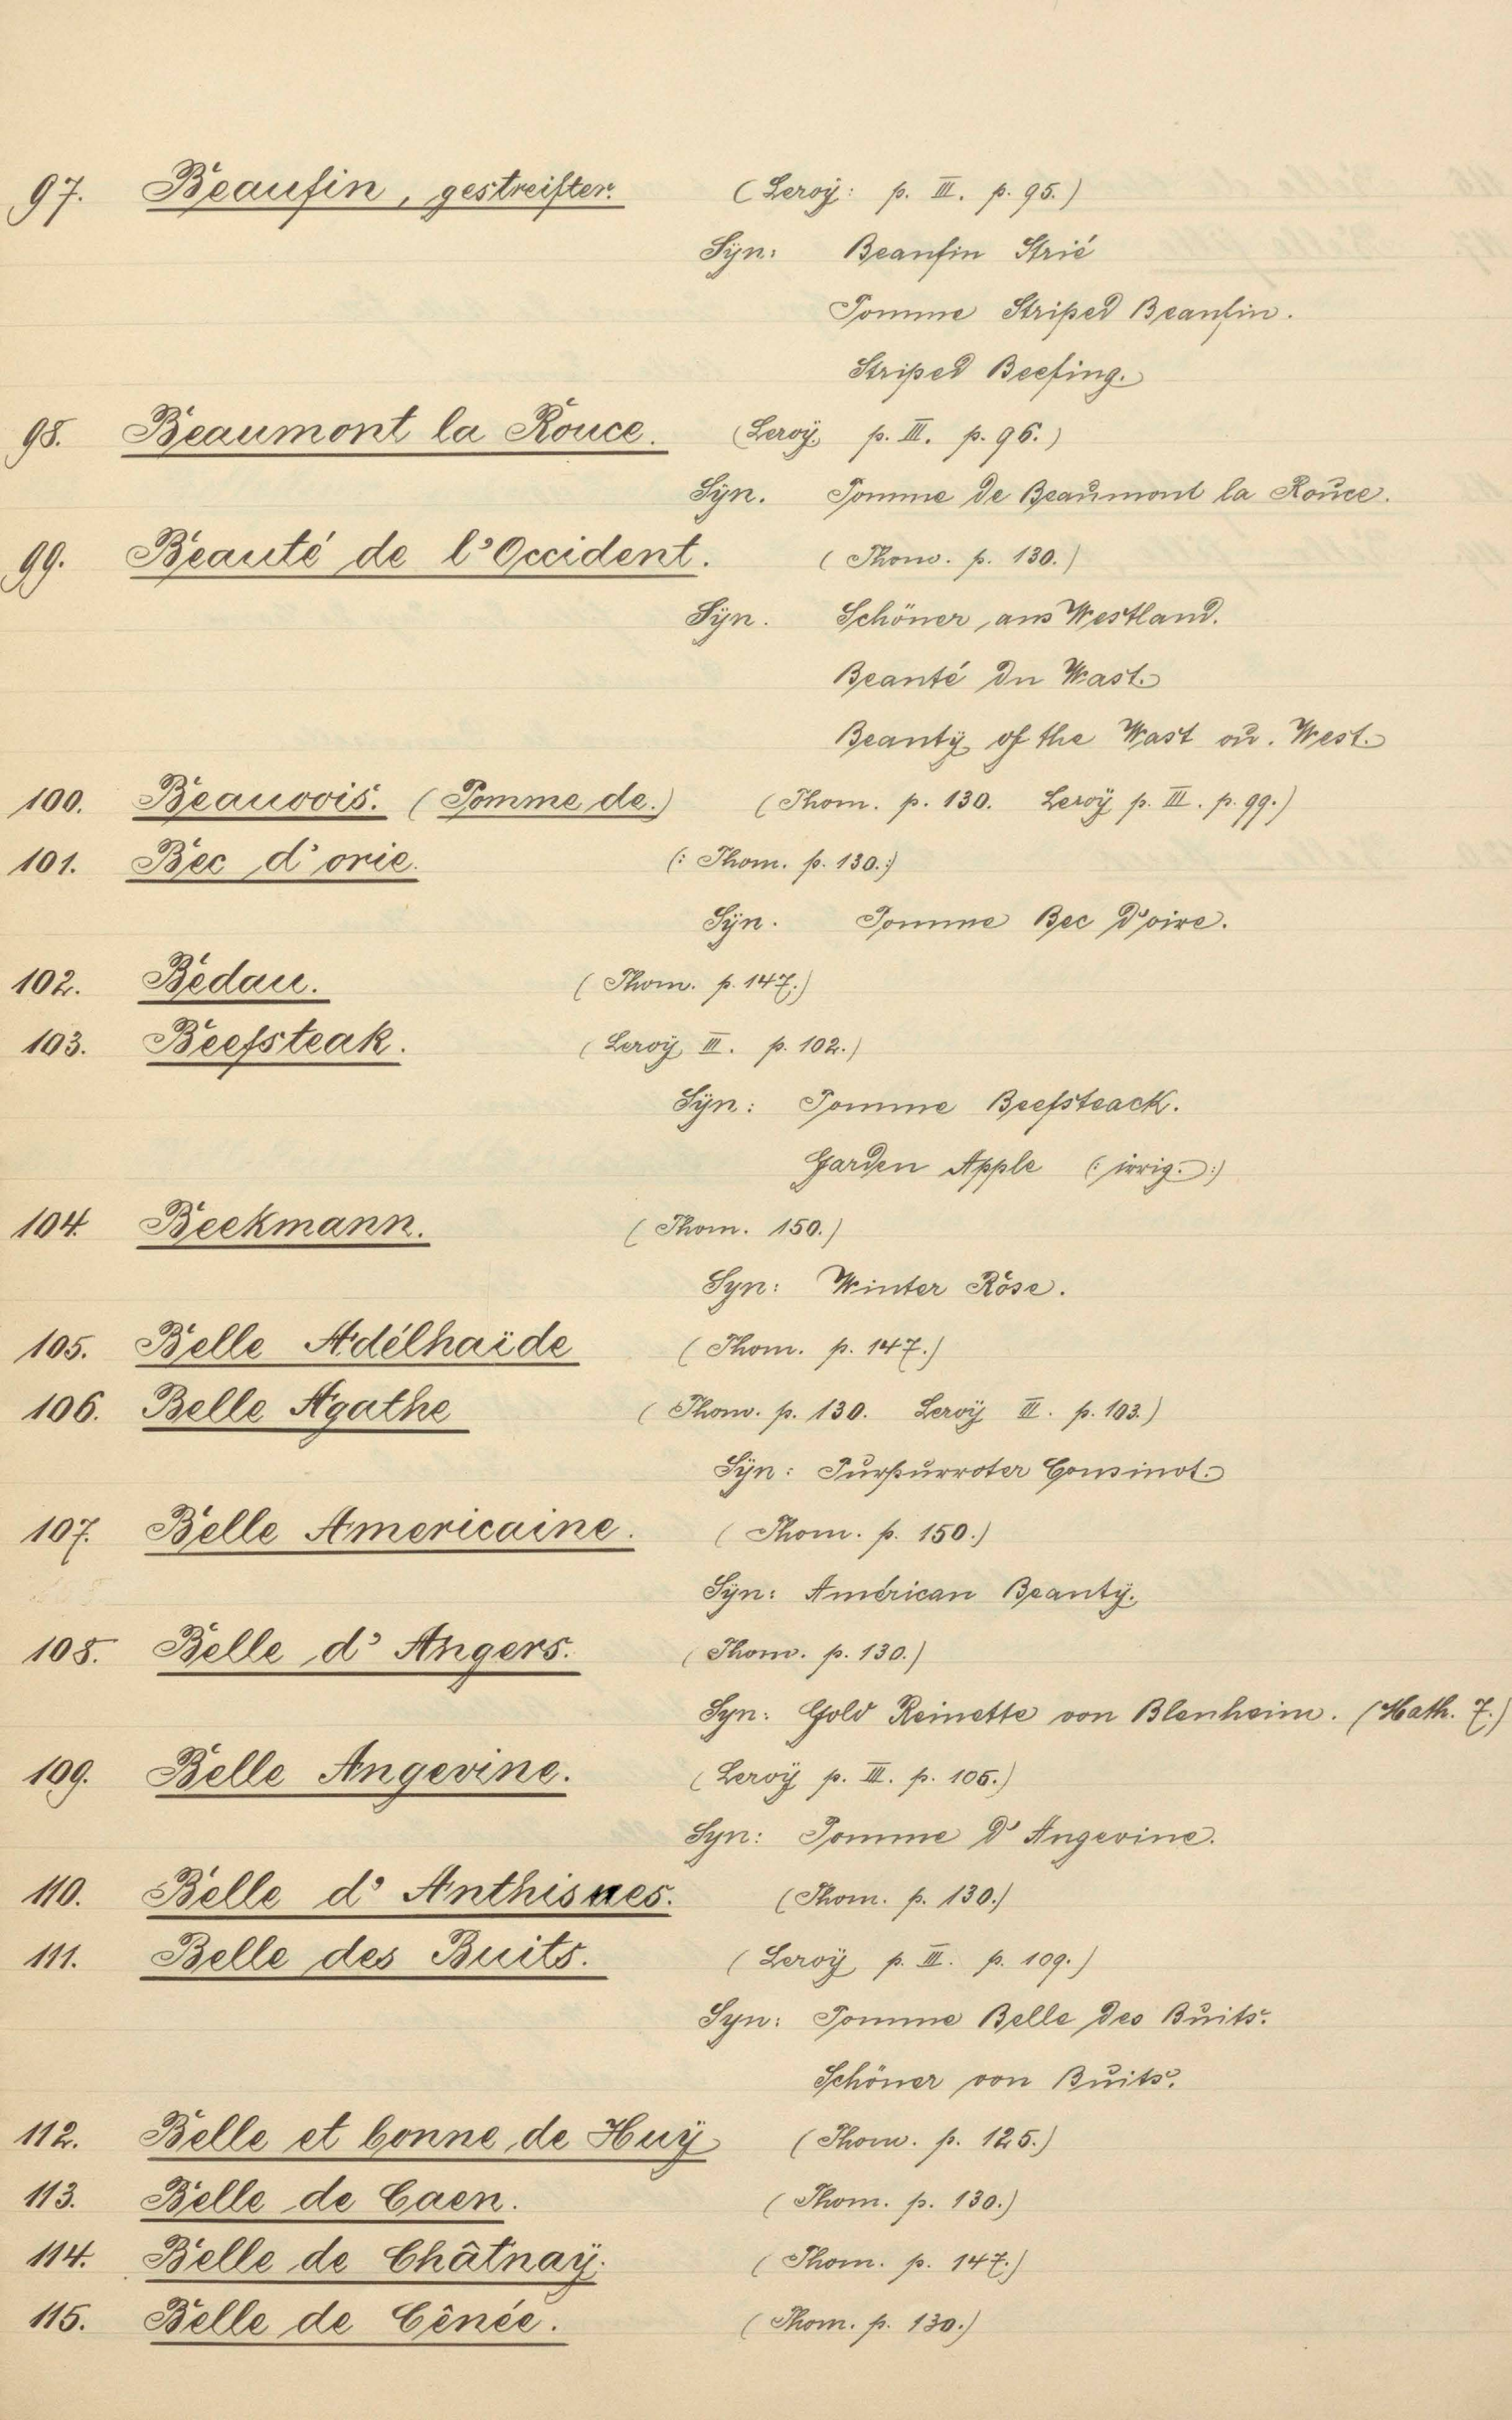 97. Beaufin, gestreifter. (Leroÿ: p. III. p. 95.)
Sÿn: Beaufin Strié
Pomme Striped Beaufin.
Striped Beefing.
98. Beaumont la Rouce. (Leroÿ p. III. p. 96.)
Sÿn. Pomme de Beaumont la Rouce.
99. Beauté de l'Occident. (Thom. p. 130.)
Sÿn. Schöner aus Westland.
Beauté du Wast.
Beautÿ of the Wast ou. West.
100. Beauvois. (Pomme de.) (Thom. p. 130. Leroÿ p. III. p. 99.)
101. Bec d'orie. (: Thom. p. 130.:)
Sÿn. Pomme Bec d'oire.
102. Bedau. (Thom. p. 147.)
103. Beefsteak. (Leroÿ III. p. 102.)
Sÿn: Pomme Beefsteack.
Garden Apple (: irrig. :)
104. Beekmann. (Thom. 150.)
Syn: Winter Rose.
105. Belle Adélhaïde (Thom. p. 147.)
106. Belle Agathe (Thom. p. 130. Leroÿ III. p. 103.)
Sÿn: Purpurroter Cousinot.
107. Belle Americaine. (Thom. p. 150.)
Sÿn: Américan Beautÿ.
108. Belle d'Angers. (Thom. p. 130.)
Syn: Gold Reinette von Blenheim. (Math. 7.)
109. Belle Angevine. (Leroÿ p. III. p. 105.)
Syn: Pomme d'Angevine.
110. Belle d'Anthisnes. (Thom. p. 130.)
111. Belle des Buits. (Leroÿ p. III. p. 109.)
Syn: Pomme Belle des Buits.
Schöner von Buits.
112. Belle et bonne de Huÿ (Thom. p. 125.)
113. Belle de Caen. (Thom. p. 130.)
114. Belle de Châtnaÿ. (Thom. p. 147.)
115. Belle de Cênée. (Thom. p. 130.)